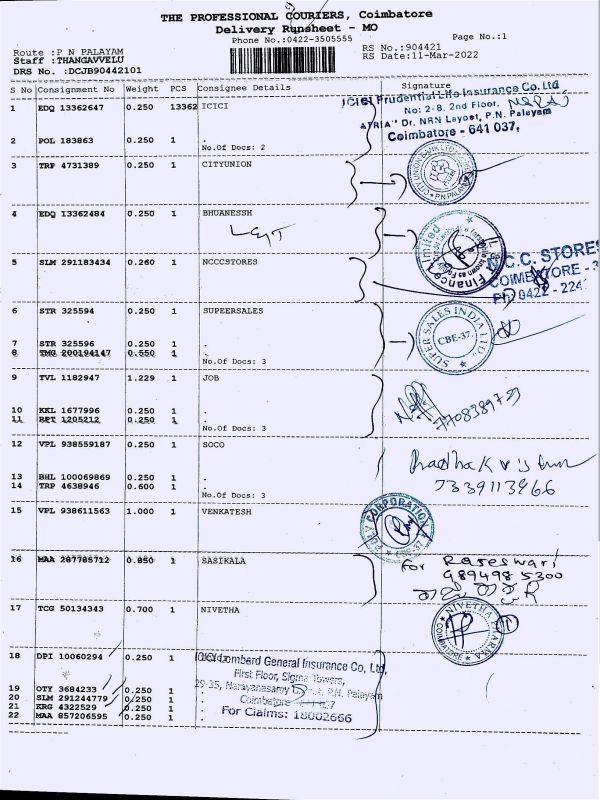 THE PROFESSIONAL COURIERS, Coimbatore
Delivery Runsheet - MO
Phone No.:0422-3505555
Page No.:1
Route :P N PALAYAM
Staff :THANGAVVELU
DRS No. :DCJB90442101
RS No.:904421
RS Date:11-Mar-2022
S No Consignment No Weight PCS Consignee Details Signature
1 EDQ 13362647 0.250 13362 ICICI
ICICI Prudential Life Insurance Co. Ltd
No: 2-8, 2nd Floor,
ATRIA" Dr. NRN Layout, P.N. Palayam
Coimbatore - 641 037,
2 POL 183863 0.250 1 .
No.Of Docs: 2
3 TRP 4731389 0.250 1 CITYUNION
4 EDQ 13362484 0.250 1 BHUANESSH
5 SLM 291183434 0.260 1 NCCCSTORES
N.C.C. STORES
COIMBATORE - 3
Ph: 0422 - 224
6 STR 325594 0.250 1 SUPEERSALES
SUPER SALES INDIA LTD.
CBE-37.
7 STR 325596 0.250 1 .
8 TMG 200194147 0.550 1 .
No.Of Docs: 3
9 TVL 1182947 1.229 1 JOB
7708389729
10 KKL 1677996 0.250 1 .
11 BPT 1205212 0.250 1 .
No.Of Docs: 3
12 VPL 938559187 0.250 1 SOCO
7339113966
13 BHL 100069869 0.250 1 .
14 TRP 4638946 0.600 1 .
No.Of Docs: 3
15 VPL 938611563 1.000 1 VENKATESH
CORPORATION
16 MAA 287785712 0.850 1 SASIKALA
For Raseswari
989498 5300
17 TCG 50134343 0.700 1 NIVETHA
NIVETHA PHARMA
COIMBATORE
18 DPI 10060294 0.250 1
ICICI Lombard General Insurance Co, Ltd,
First Floor, Sigma Towers,
29-35, Narayanasamy P.N. Palayam
Coimbatore
For Claims: 18002666
19 OTY 3684233 0.250 1 .
20 SLM 291244779 0.250 1 .
21 KRG 4322529 0.250 1 .
22 MAA 857206595 0.250 1 .